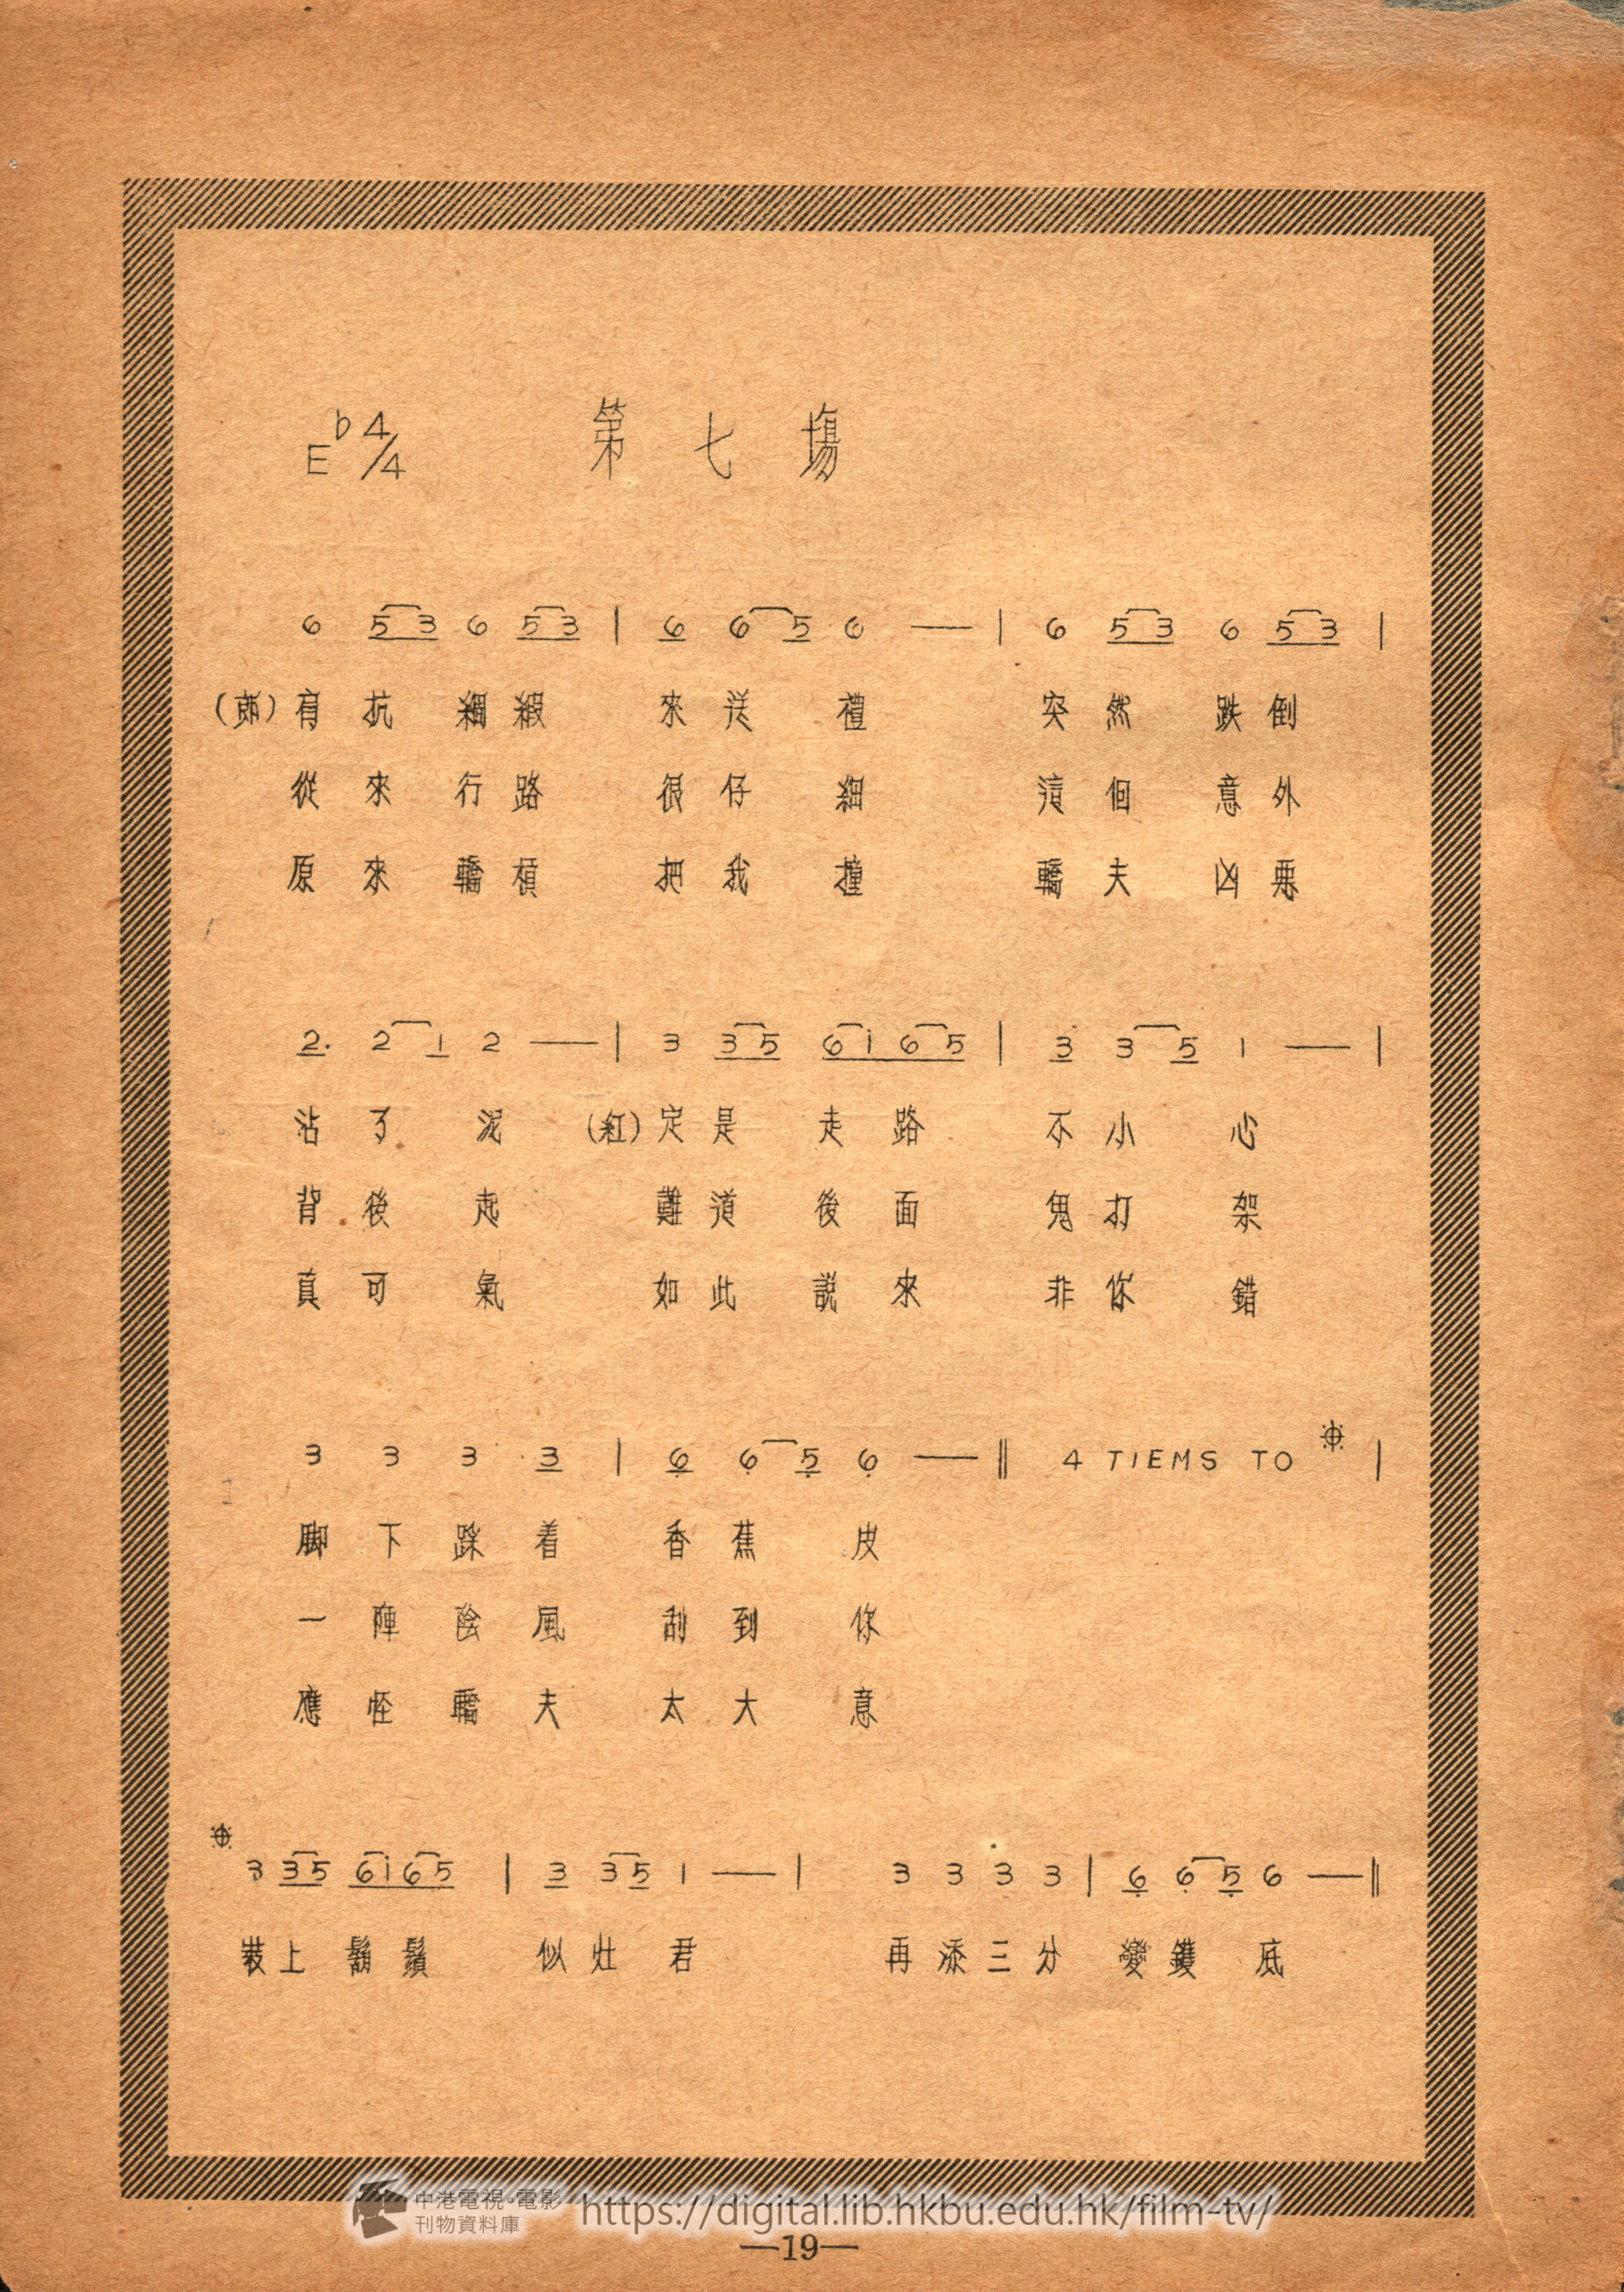 E♭4/4 第七場
6 5 3 6 5 3 | 6 6 5 6 — | 6 5 3 6 5 3 |
有抗綢緞 來送禮 突然跌倒
從來行路 很仔細 這個意外
原來轎槓 把我撞 轎夫凶惡
2. 2 1 2 — | 3 3 5 6 i 6 5 | 3 3 5 1 — |
沾了泥 (紅)定是走路 不小心
背後起 難道後面 鬼打架
真可氣 如此説來 非你錯
3 3 3 3 | 6 6 5 6 — || 4 TIEMS TO |
脚下踩着 香蕉皮
一陣陰風 刮到你
應怪轎夫 太大意
3 3 5 6 i 6 5 | 3 3 5 1 — | 3 3 3 3 | 6 6 5 6 — ||
裝上鬍鬚 似灶君 再添三分 變鑊底
中港電視·電影
刊物資料庫
https://digital.lib.hkbu.edu.hk/film-tv/
—19—